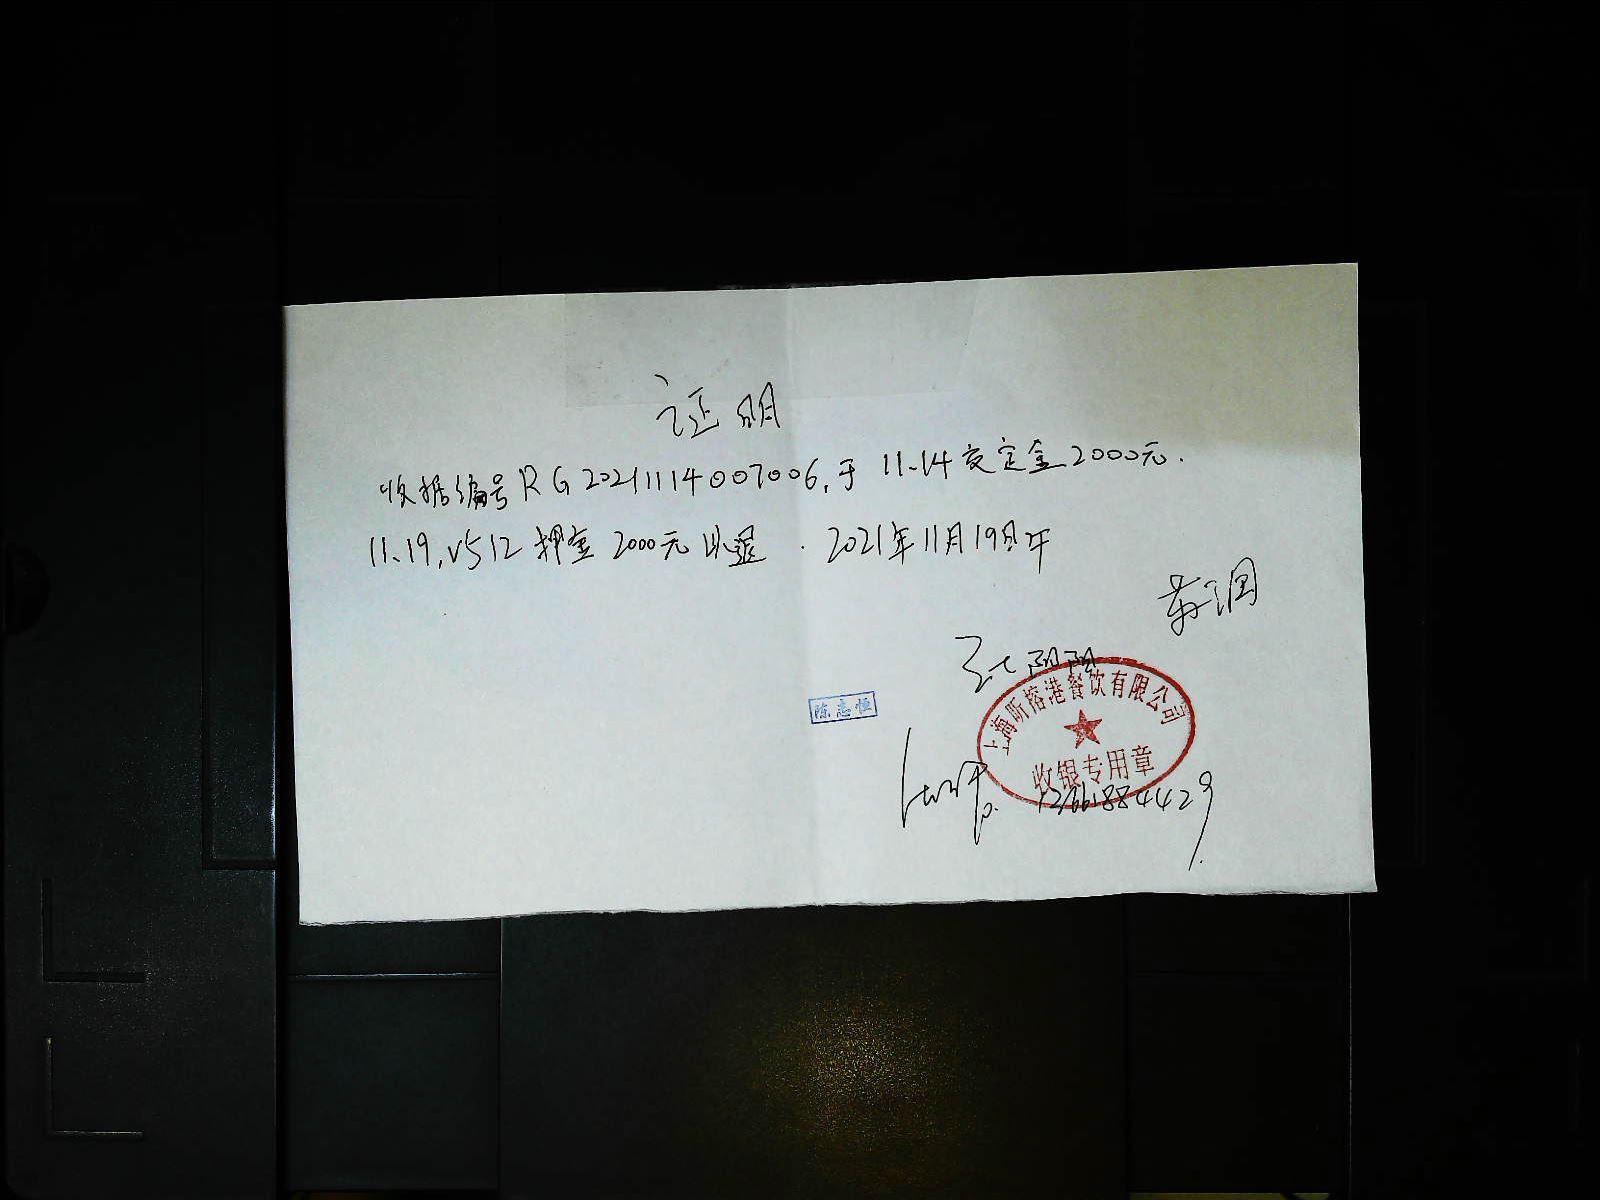 证明
收据编号RG20211114007006,于11.14交定金2000元.
11.19,V512押金2000元已退.2021年11月19日下午
陈志恒
上海昕榕港餐饮有限公司
收银专用章